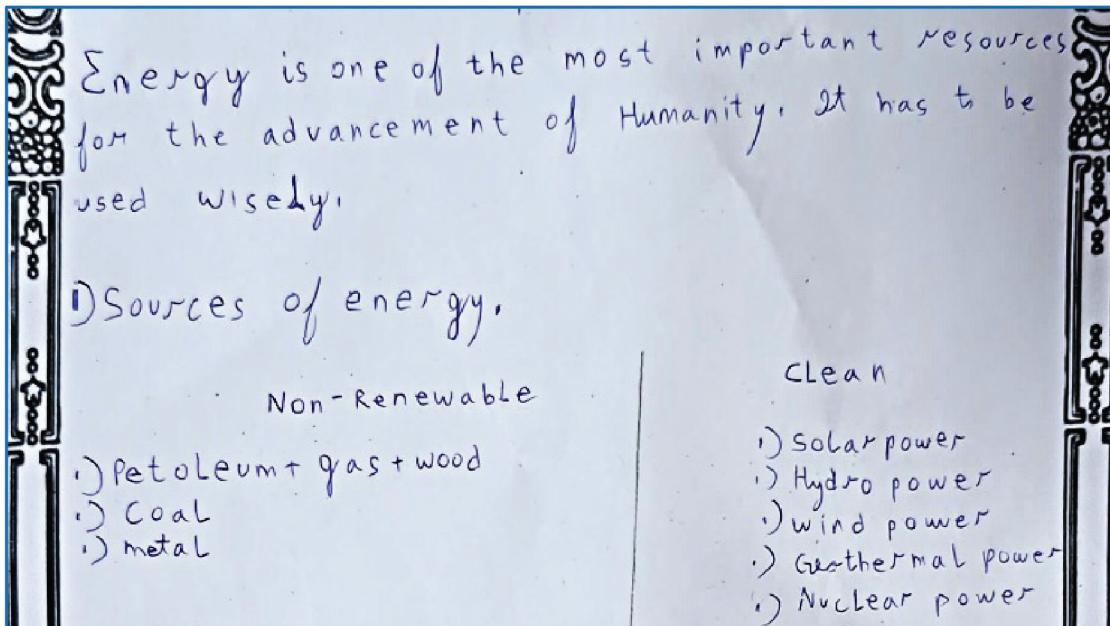 Energy is one of the most important resources
for the advancement of Humanity. It has to be
used wisely.
1) Sources of energy.
Non-Renewable
.) Petoleum + gas + wood
.) Coal
.) metal
Clean
.) Solar power
.) Hydro power
.) wind power
.) Geothermal power
.) Nuclear power